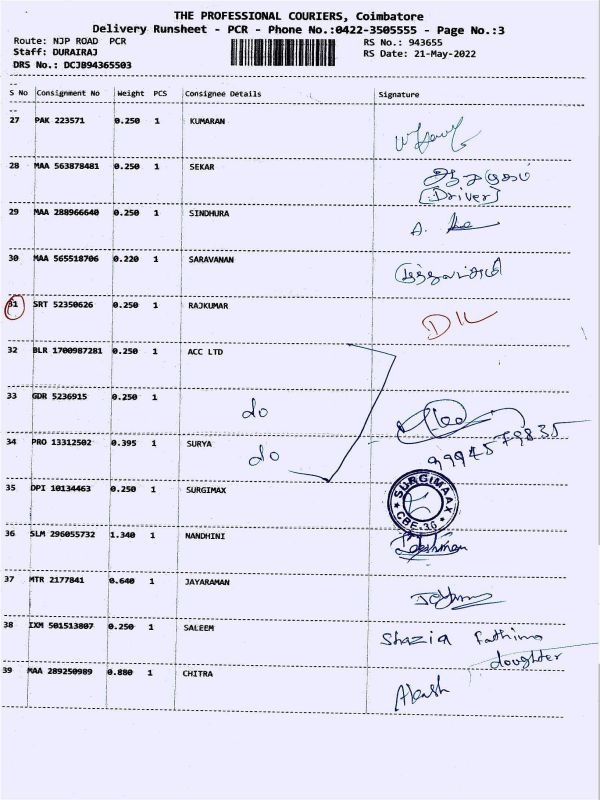 THE PROFESSIONAL COURIERS, Coimbatore
Delivery Runsheet - PCR - Phone No.:0422-3505555 - Page No.:3
Route: NJP ROAD PCR
RS No.: 943655
Staff: DURAIRAJ
RS Date: 21-May-2022
DRS No.: DCJ894365503
S No Consignment No Weight PCS Consignee Details Signature
27 PAK 223571 0.250 1 KUMARAN
28 MAA 563878481 0.250 1 SEKAR
[Driver]
29 MAA 288966640 0.250 1 SINDHURA A.
30 MAA 565518706 0.220 1 SARAVANAN
31 SRT 52350626 0.250 1 RAJKUMAR DL
32 BLR 1700987281 0.250 1 ACC LTD
33 GDR 5236915 0.250 1 do
34 PRO 13312502 0.395 1 SURYA 9994579835
do
35 DPI 10134463 0.250 1 SURGIMAX SURGIMAAX CBE-36
36 SLM 296055732 1.340 1 NANDHINI
37 MTR 2177841 0.640 1 JAYARAMAN
38 IXM 501513807 0.250 1 SALEEM Shazia Fathima
doughter
39 MAA 289250989 0.880 1 CHITRA Akash